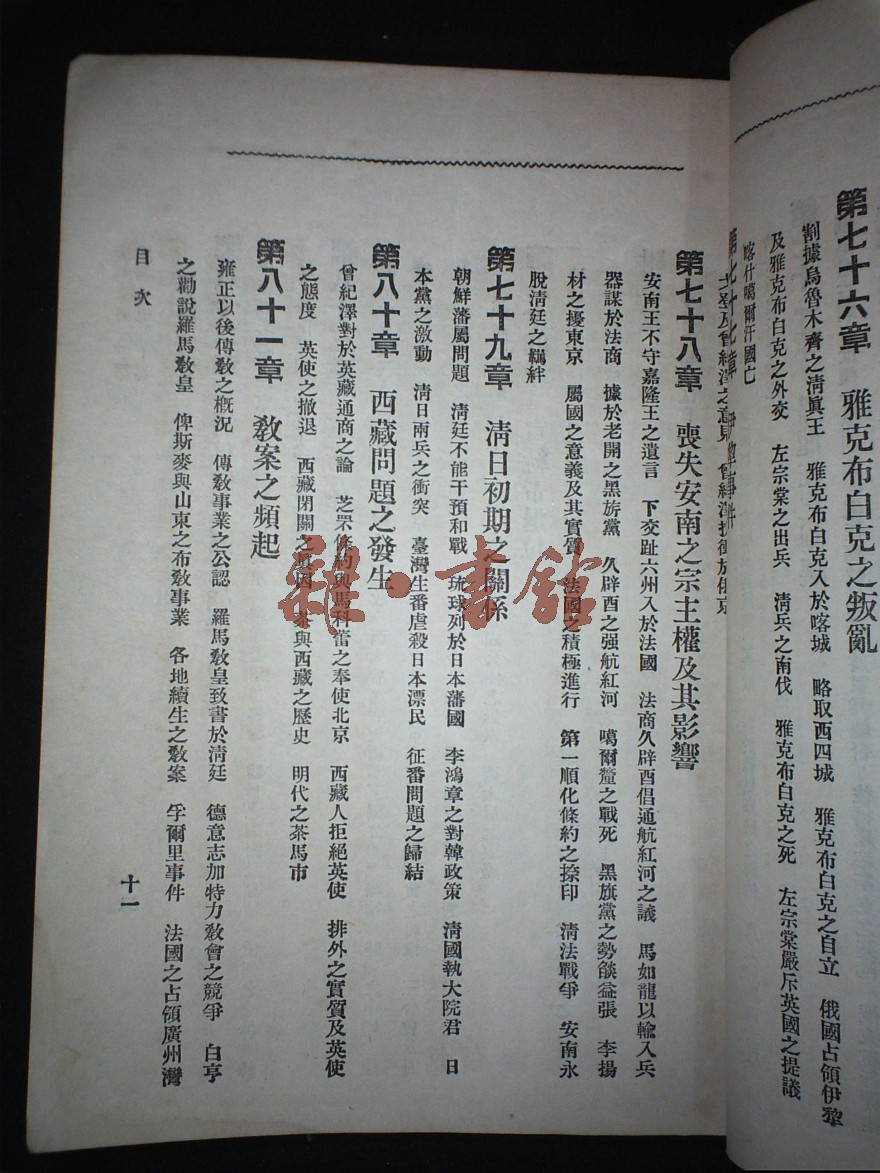 第七十六章　雅克布白克之叛亂
割據烏魯木齊之淸眞王　雅克布白克入於喀城　略取西四城　雅克布白克之自立　俄國占領伊犂
及雅克布白克之外交　左宗棠之出兵　淸兵之南伐　雅克布白克之死　左宗棠嚴斥英國之提議
喀什噶爾汗國亡
第七十七章　伊犂事件
第七十八章　喪失安南之宗主權及其影響
安南王不守嘉隆王之遺言　下交趾六州入於法國　法商久辟酉倡通航紅河之議　馬如龍以輸入兵
器謀於法商　據於老開之黑旂黨　久辟酉之强航紅河　噶爾釐之戰死　黑旗黨之勢燄益張　李揚
材之擾東京　屬國之意義及其實質　法國之積極進行　第一順化條約之捺印　淸法戰爭　安南永
脫淸廷之羈絆
第七十九章　淸日初期之關係
朝鮮藩屬問題　淸廷不能干預和戰　琉球列於日本藩國　李鴻章之對韓政策　淸國執大院君　日
本黨之激動　淸日兩兵之衝突　臺灣生番虐殺日本漂民　征番問題之歸結
第八十章　西藏問題之發生
曾紀澤對於英藏通商之論　芝罘條約與馬科蕾之奉使北京　西藏人拒絕英使　排外之實質及英使
之態度　英使之撤退　西藏閉關之眞因　茶與西藏之歷史　明代之茶馬市
第八十一章　敎案之頻起
雍正以後傳敎之槪況　傳敎事業之公認　羅馬敎皇致書於淸廷　德意志加特力敎會之競爭　白亨
之勸說羅馬敎皇　俾斯麥與山東之布敎事業　各地續生之敎案　孚爾里事件　法國之占領廣州灣
目次
十一
雜·書館